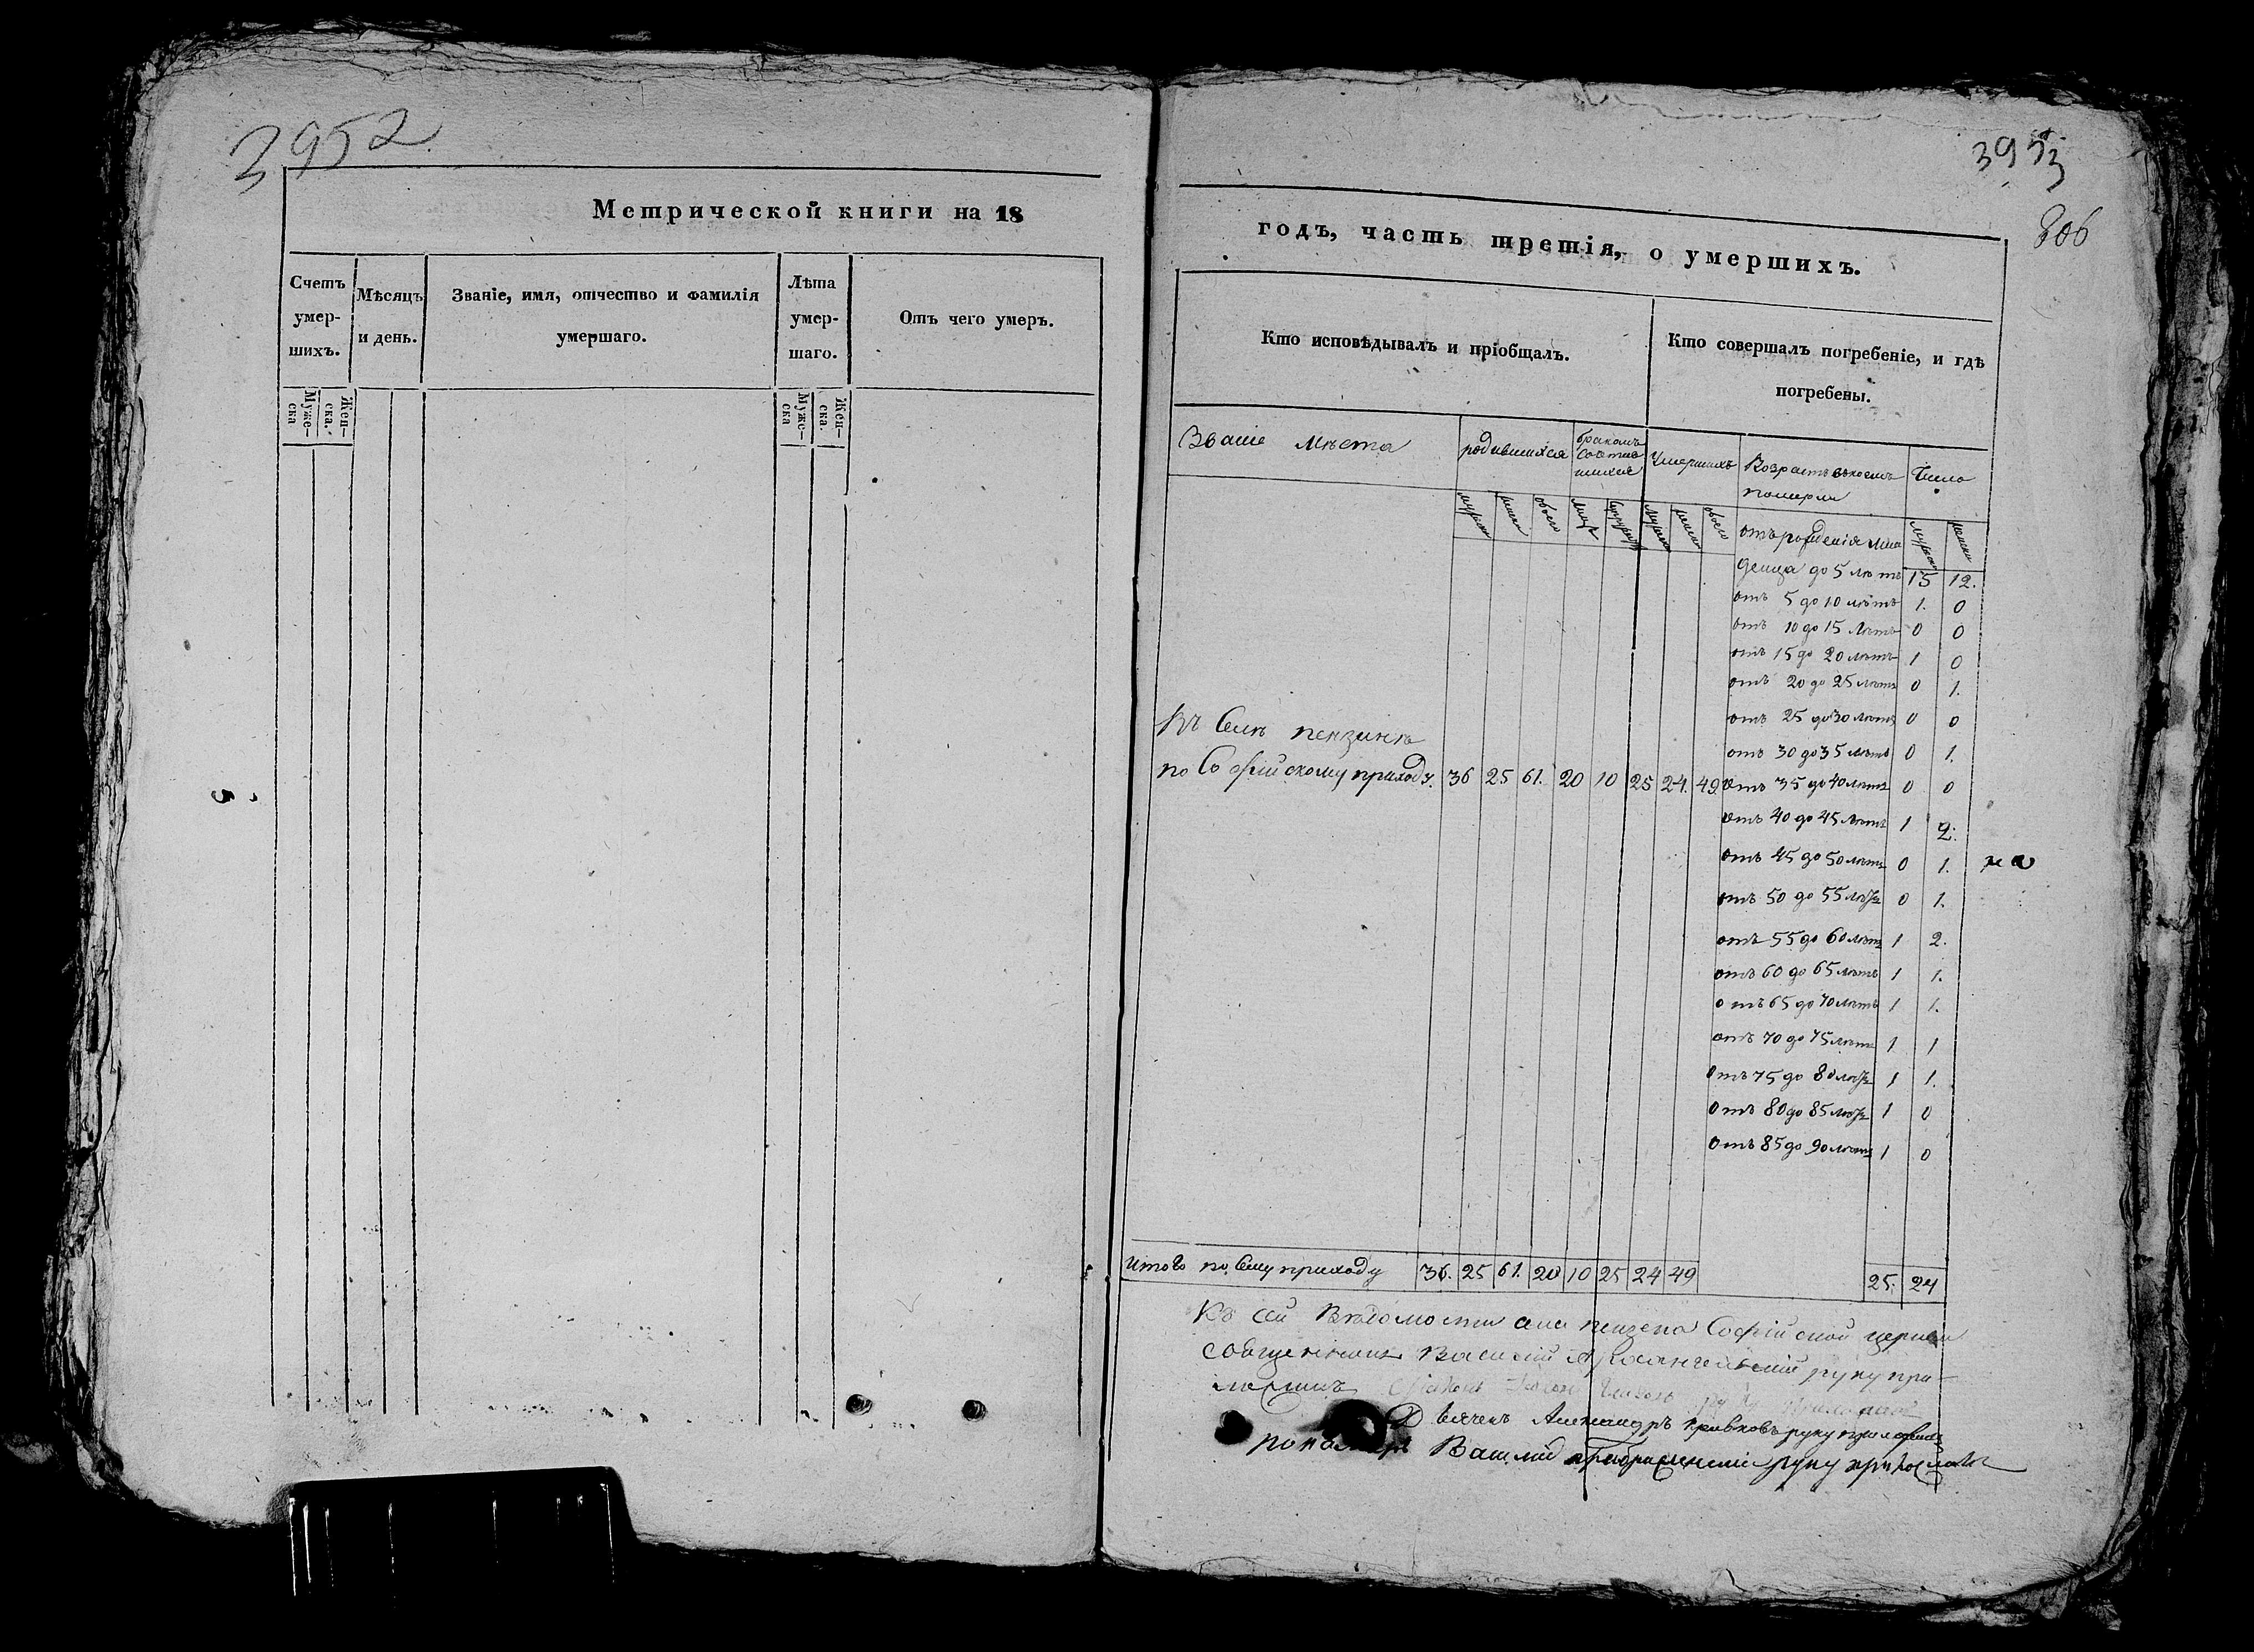 3952
Метрической книги на 18
Счетъ умер-шихъ.
Мѣсяцъ и день.
Званіе, имя, отчество и фамилія умершаго.
Лѣта умер-шаго.
Отъ чего умеръ.
Муже-ска
Жен-ска.
Муже-ска
Жен-ска.
3953
306
годъ, часть третія, о умершихъ.
Кто исповѣдывалъ и пріобщалъ.
Кто совершалъ погребеніе, и гдѣ погребены.
Званіе мѣста
родившихся
бракомъ
умершихъ
Возрастъ въ коемъ померли
Число
отъ рожденія мла
денца до 5 лѣтъ 15 12.
отъ 5 до 10 лѣтъ 1. 0
отъ 10 до 15 лѣтъ 0 0
отъ 15 до 20 лѣтъ 1 0
отъ 20 до 25 лѣтъ 0 1.
отъ 25 до 30 лѣтъ 0 0
отъ 30 до 35 лѣтъ 0 1.
Въ Селѣ пензинѣ
по Софійскому приходу. 36 25 61. 20 10 25 24. 49.
отъ 35 до 40 лѣтъ 0 0
отъ 40 до 45 лѣтъ 1 2.
отъ 45 до 50 лѣтъ 0 1.
отъ 50 до 55 лѣтъ 0 1.
отъ 55 до 60 лѣтъ 1 2.
отъ 60 до 65 лѣтъ 1 1.
отъ 65 до 70 лѣтъ 1 1.
отъ 70 до 75 лѣтъ 1 1
отъ 75 до 80 лѣтъ 1 1.
отъ 80 до 85 лѣтъ 1 0
отъ 85 до 90 лѣтъ 1 0
Итого по сему приходу 36. 25 61. 20 10 25 24 49 25. 24
Къ сей Вѣдомости села Софійской церкви
священникъ Василій Архангельскій руку при-
ложилъ
Дьячекъ Александръ руку приложилъ
пономарь Василій руку приложилъ